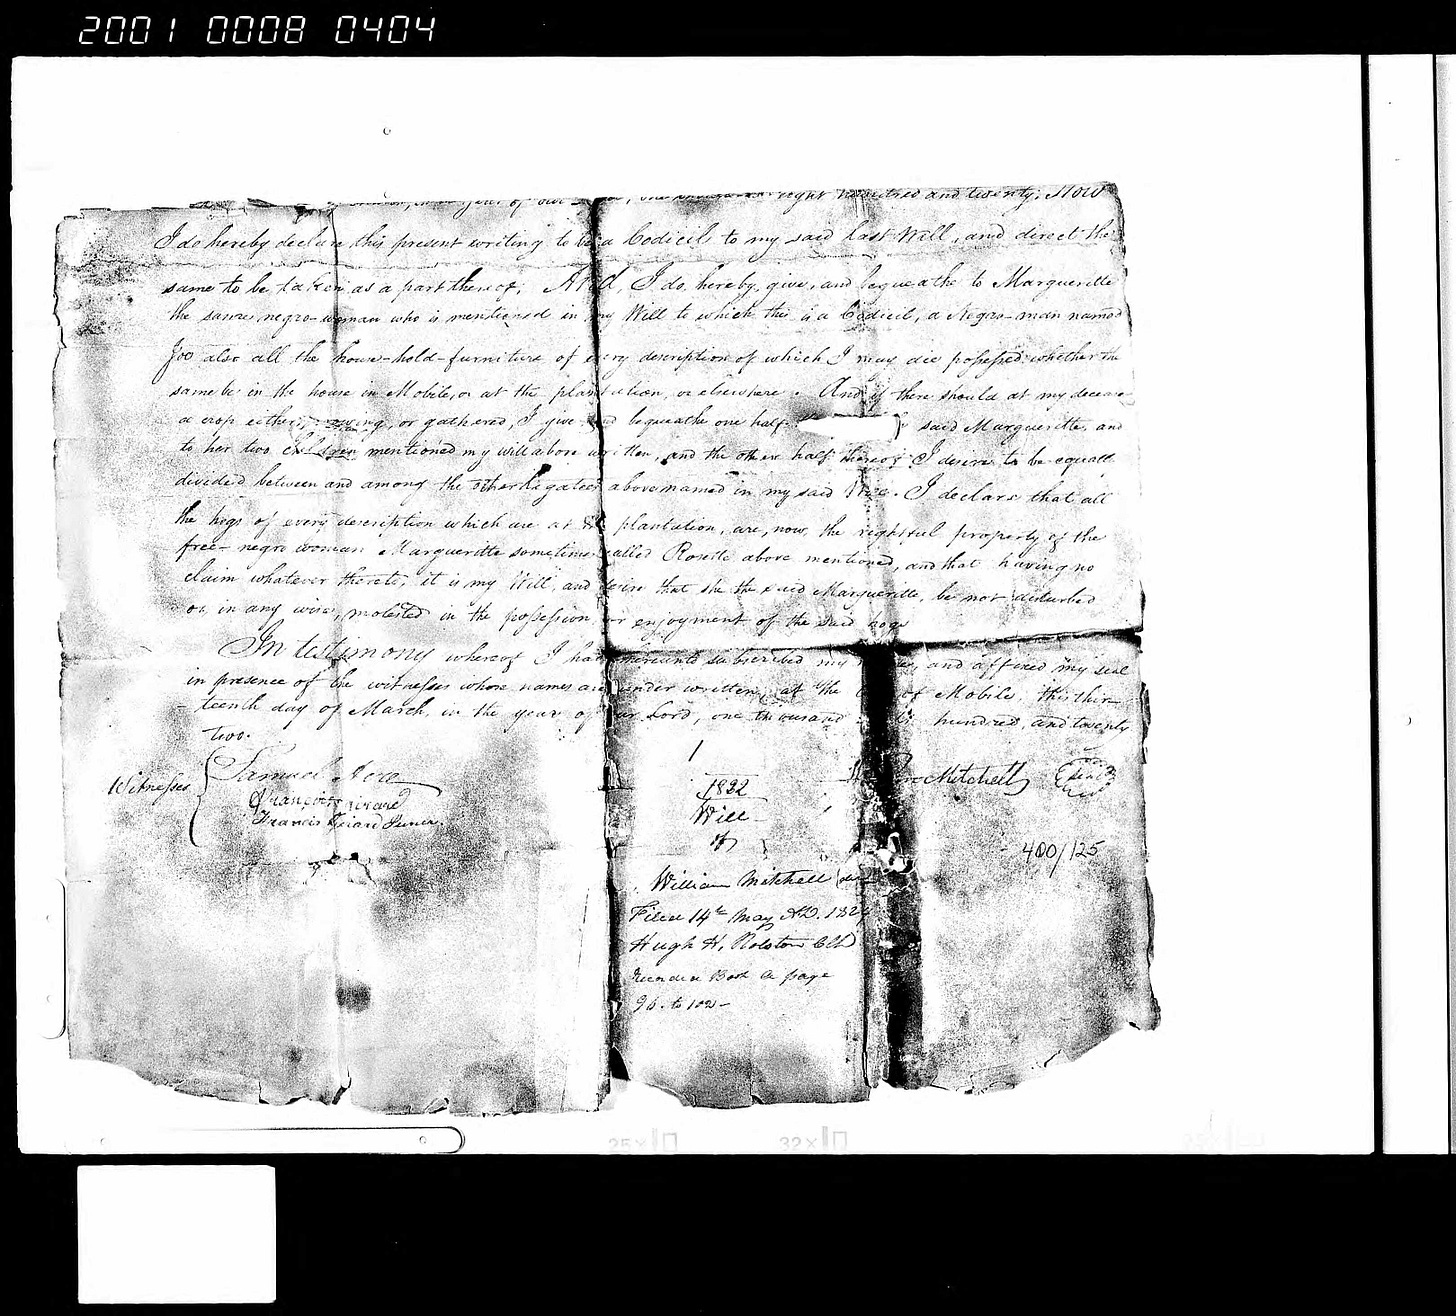 2001 0008 0404
year of our eight hundred and twenty; Now
I do hereby declare this present writing to be a Codicil to my said last Will, and direct the
same to be taken as a part thereof; And, I do, hereby, give, and bequeathe to Margueritte
the same negro-woman who is mentioned in my Will to which this is a Codicil, a Negro-man named
Joe also all the house-hold-furniture of every description of which I may die possessed whether the
same be in the house in Mobile, or at the plantation, or elsewhere. And if there should at my decease
a crop either, growing, or gathered, I give and bequeathe one half said Margueritte, and
to her two children mentioned my will above written, and the other half thereof I desire to be equall
divided between and among the other Legatees above named in my said Will. I declare that all
the hogs of every description which are at the plantation, are, now, the rightful property of the
free-negro woman Margueritte sometimes called Rosette above mentioned, and that having no
claim whatever thereto, it is my Will, and desire that she the said Margueritte, be not disturbed
or, in any wise, molested in the possession or enjoyment of the said hogs
In testimony whereof I have hereunto subscribed my and affixed my seal
in presence of the witnesses whose names are under written, at the of Mobile, this thir-
teenth day of March, in the year of our Lord, one thousand hundred, and twenty
two.
Witnesses Samuel Acre Mitchell Seal
François Girard
Francis Girard Junr.
1
1822
Will
of
400/125
William Mitchell
Filed 14th May AD. 1824
Hugh H. Rolston Clk
Book A page
96. to 102-
25x 32x